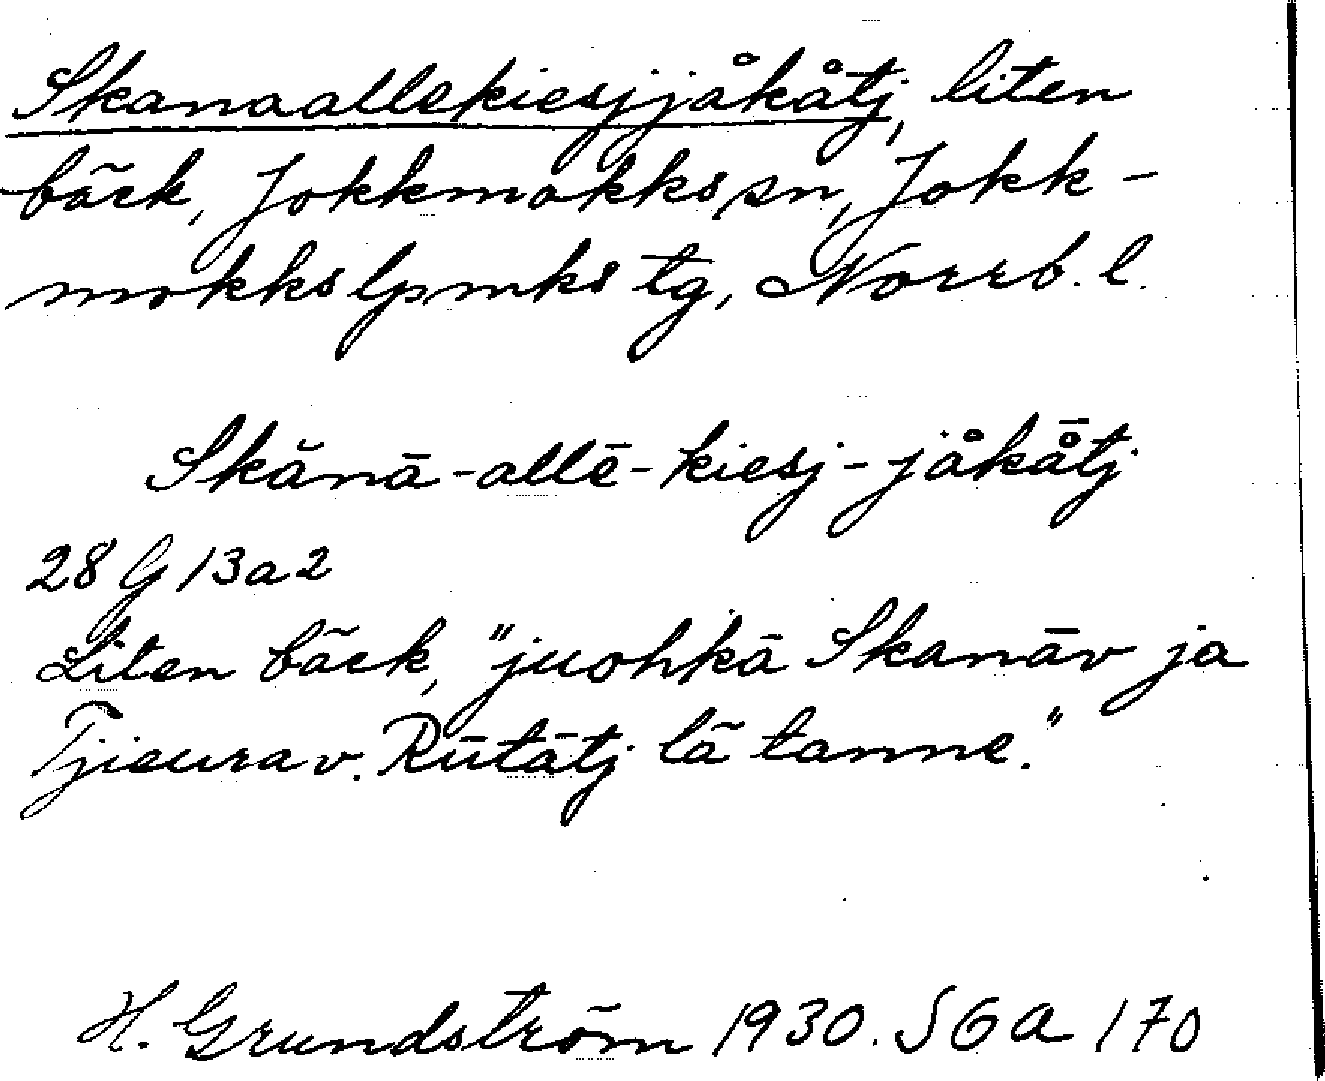 Skanaallekiesjjåkåtj, liten
bäck, Jokkmokks sn, Jokk-
mokks lpmks tg, Norrb. l.
Skănā-allē-kiesj-jåkå̄tj
28 G 13a2
Liten bäck, "juohkā Skanāv ja
Tjieurav. Rūtātj lā tanne."
H. Grundström 1930. SGA 170